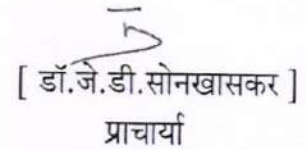 [ डॉ.जे.डी.सोनखासकर ]
प्राचार्या